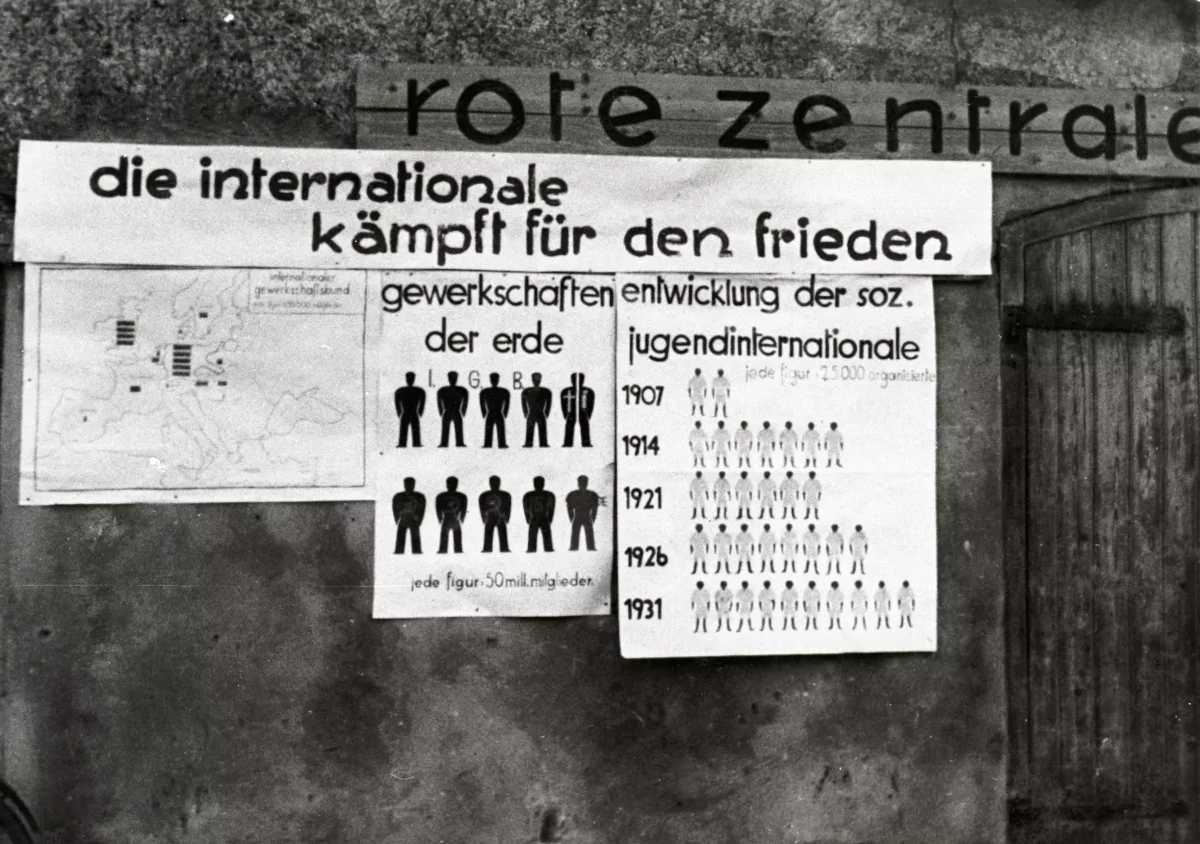 rote zentrale
die internationale
kämpft für den frieden
internationaler
gewerkschaftsbund
gewerkschaften
der erde
I. G. B.
jede figur 50 mill. mitglieder.
entwicklung der soz.
jugendinternationale
jede figur 25000 organisierte
1907
1914
1921
1926
1931